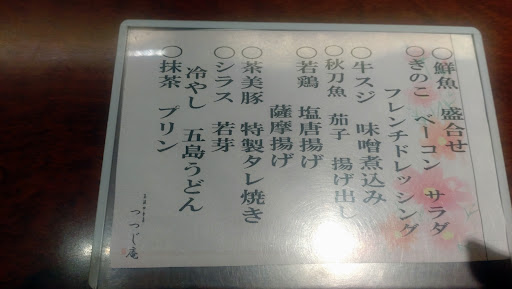 ○鮮魚 盛合せ
○きのこ ベーコン サラダ
フレンチドレッシング
○牛スジ 味噌煮込み
○秋刀魚 茄子 揚げ出し
○若鶏 塩唐揚げ
薩摩揚げ
○茶美豚 特製タレ焼き
○シラス 若芽
冷やし 五島うどん
○抹茶 プリン
つつじ庵